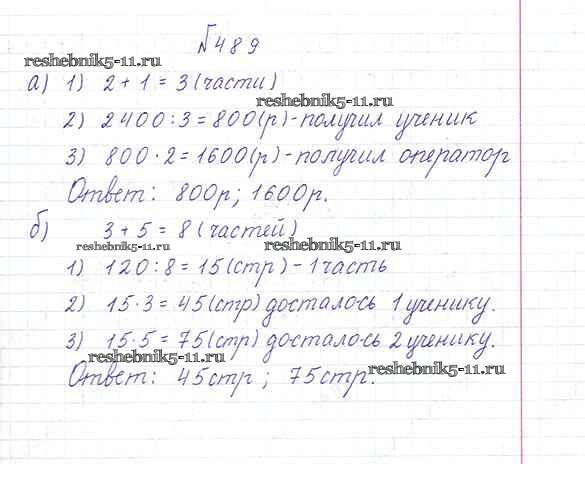 №489
reshebnik5-11.ru
а) 1) 2 + 1 = 3 (части)
reshebnik5-11.ru
2) 2400 : 3 = 800(р) - получил ученик
3) 800 · 2 = 1600(р) - получил оператор
Ответ: 800р; 1600р.
б) 3 + 5 = 8 (частей)
reshebnik5-11.ru reshebnik5-11.ru
1) 120 : 8 = 15(стр) - 1 часть
2) 15 · 3 = 45(стр) досталось 1 ученику.
3) 15 · 5 = 75(стр) досталось 2 ученику.
reshebnik5-11.ru reshebnik5-11.ru
Ответ: 45стр; 75стр.